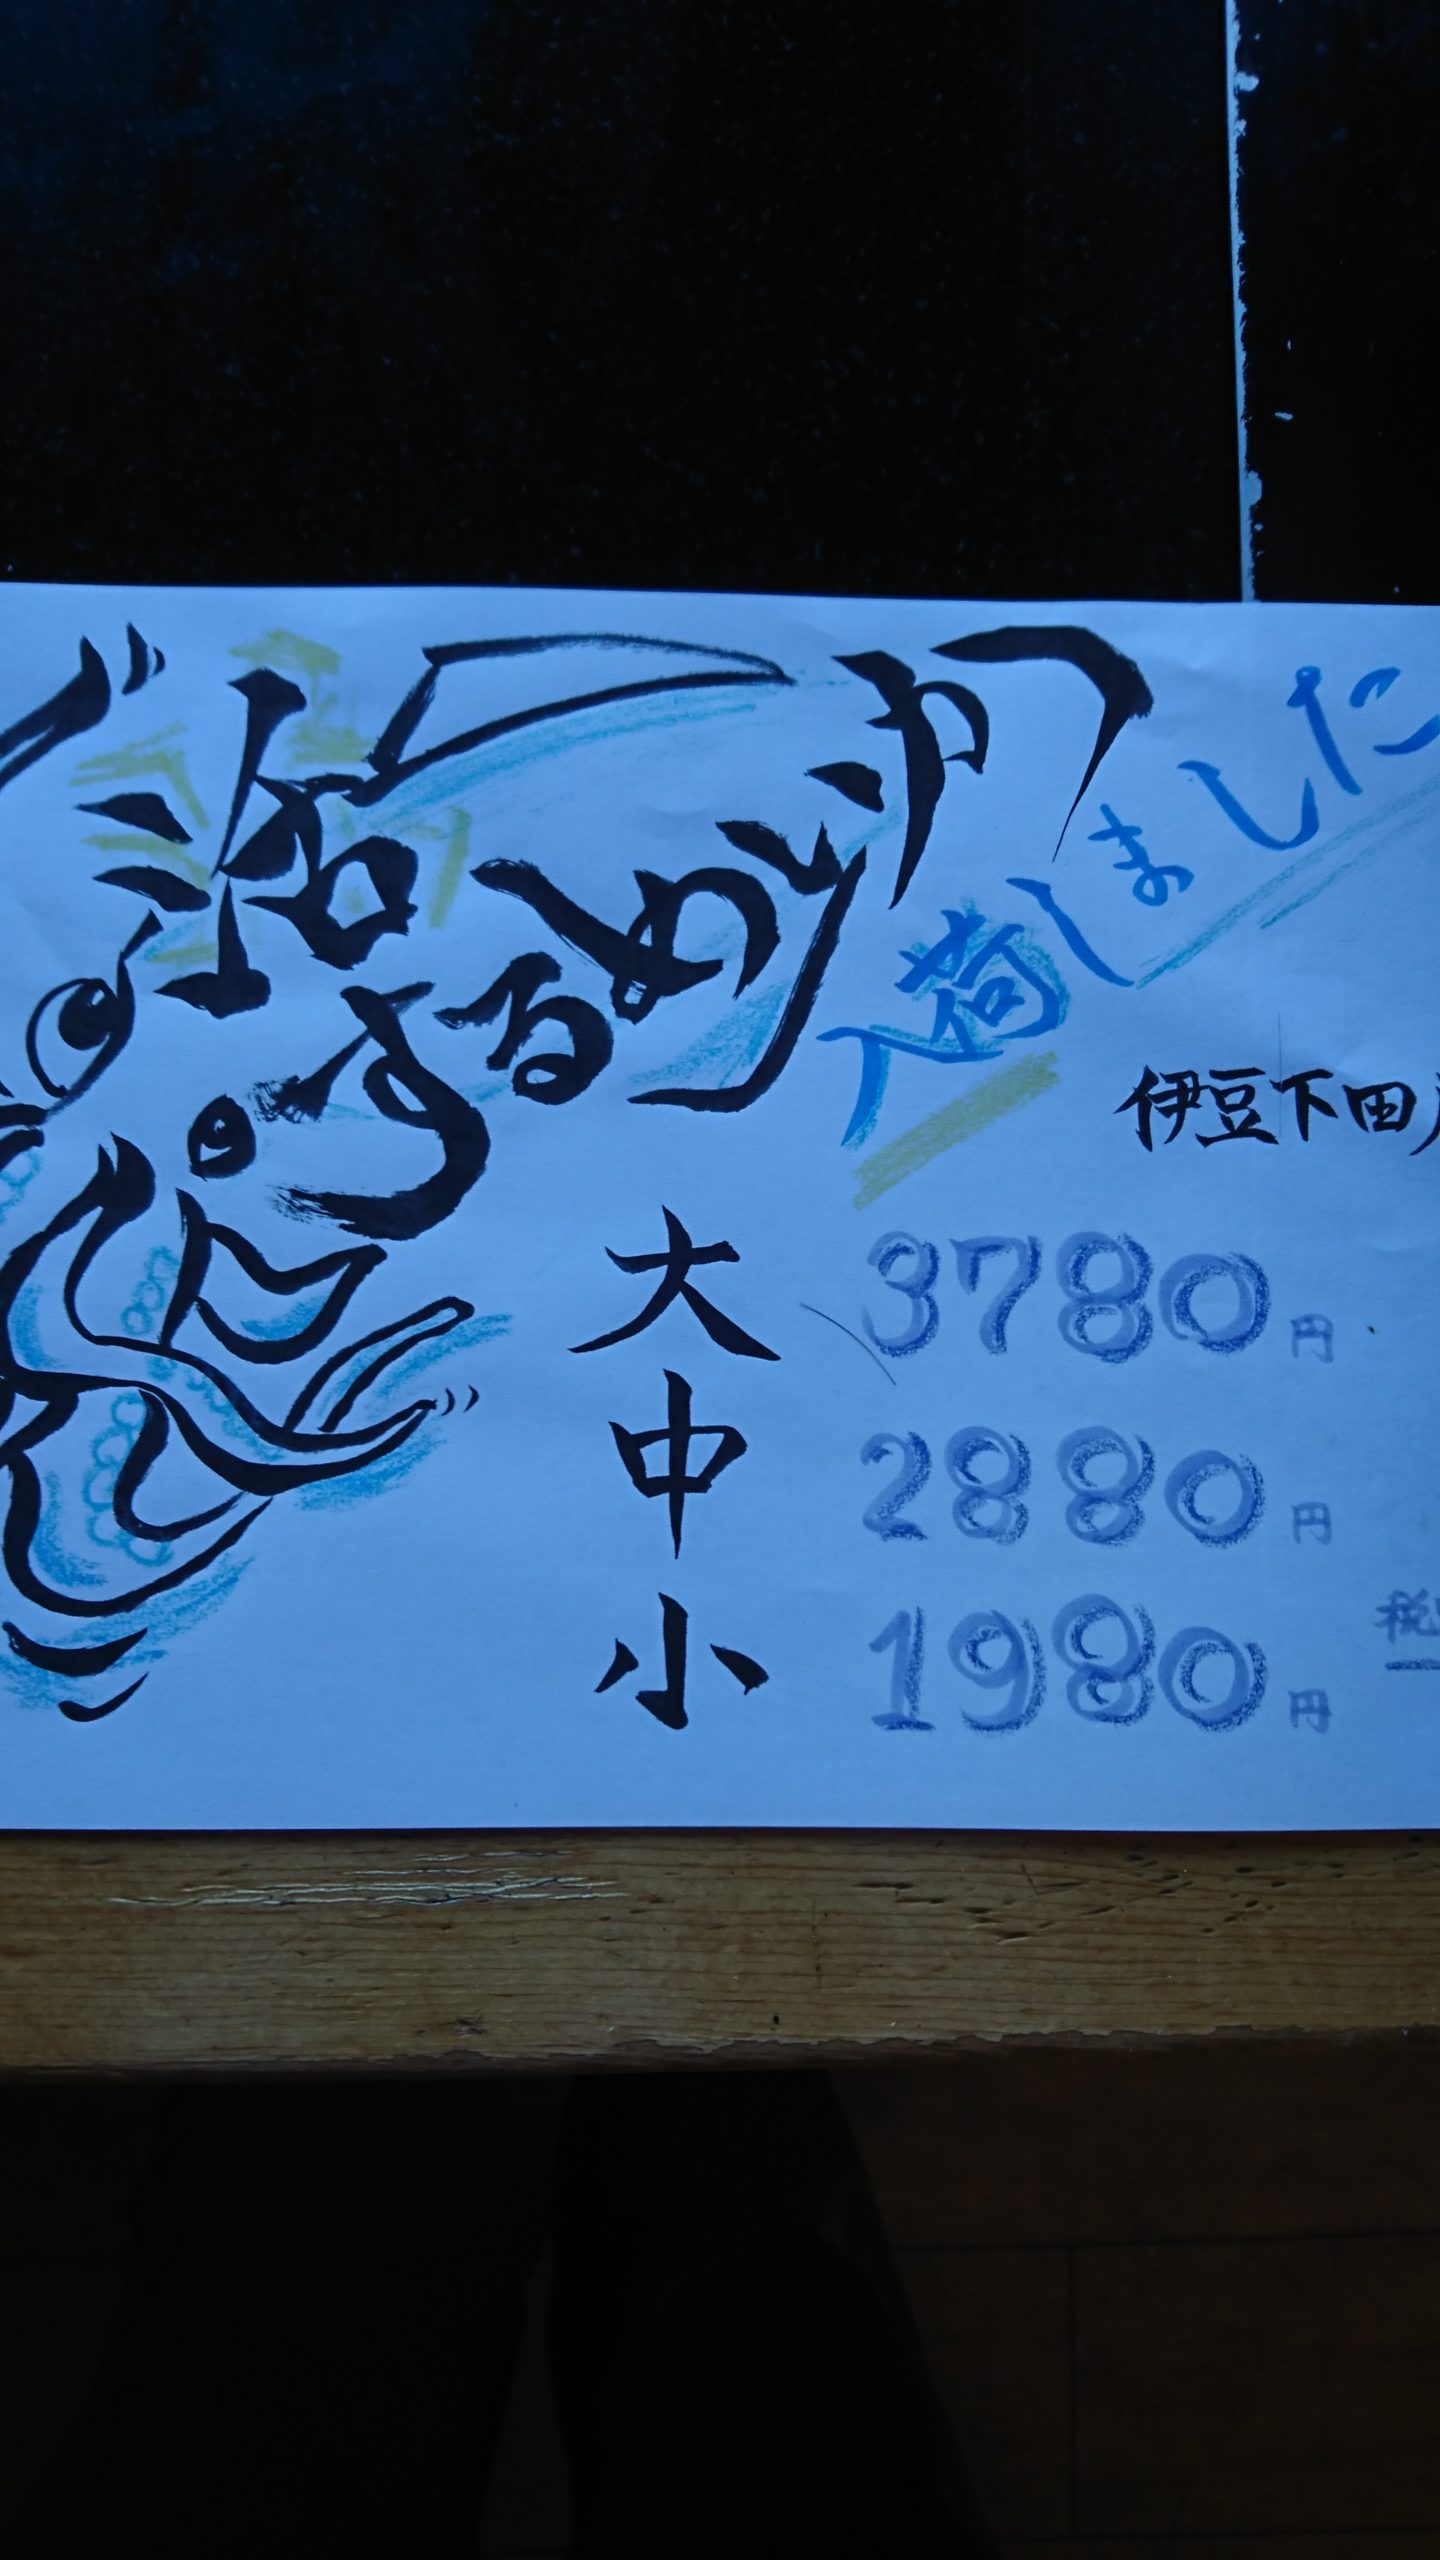 活するめいか
入荷しました
伊豆下田
大 3780円
中 2880円
小 1980円
税